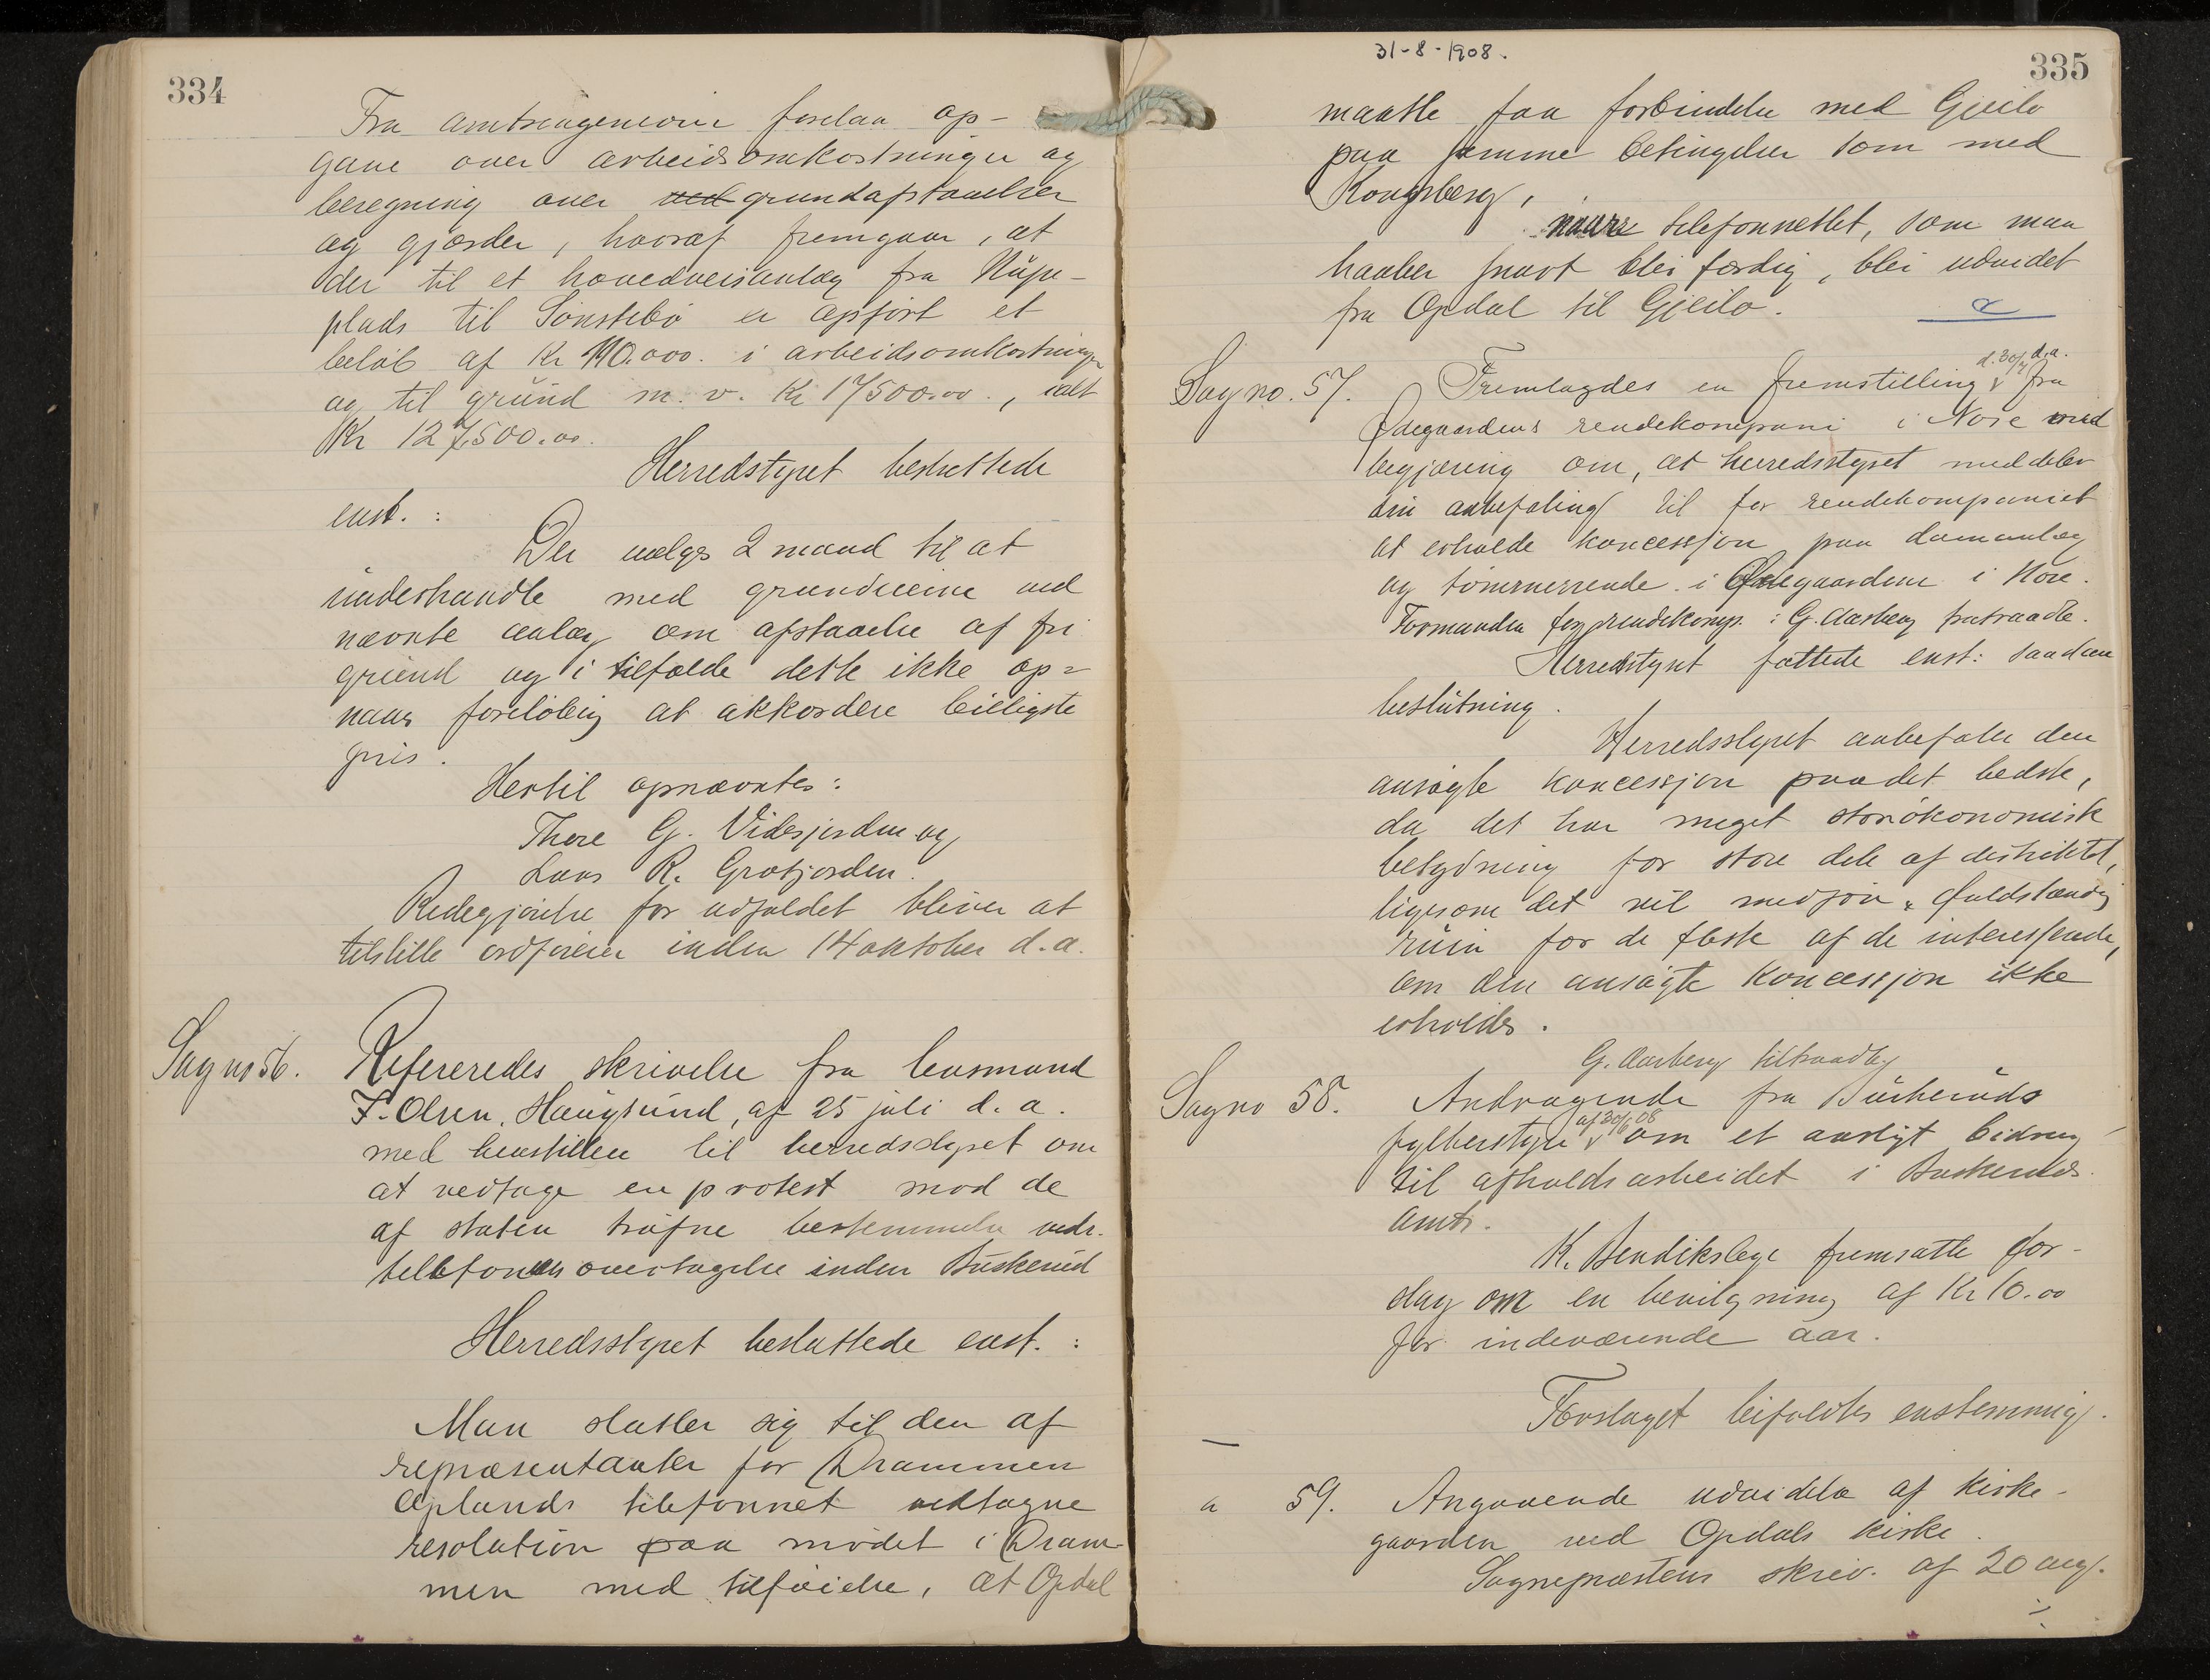 334
Fra amtsingeniøren forelaa op-
gave over arbeidsomkostninger og
beregning over ved grundafstaaelser
og gjærder, hvoraf fremgaar, at
der til et hovedveisanlæg fra
plads til Sønstebø er opført et
beløb af Kr 110.000. i arbeidsomkostninger
og til grund m. v. Kr 17500.00., ialt
Kr 127,500.00.
Herredstyret besluttede
enst. :
Der vælges 2 mand til at
underhandle med grundeierne ved
nævnte anlæg om afstaaelse af fri
grund og i tilfælde dette ikke op=
naaes foreløbig at akkordere billigste
pris.
Hertil opnævntes:
Thore G. Videsjorden og
Lars R. Grøtjorden.
Redegjørelse for udfaldet bliver at
tilstille ordfører inden 14 oktober d.a.
Sag no 56. Refereredes skrivelse fra lensmand
F. Olsen, Haugsund, af 25 juli d. a.
med henstillen til herredsstyret om
at vedtage en protest mod de
af staten trufne bestemmelser vedr.
telefonens overtagelse inden Buskerud
Herredsstyret besluttede enst. :
Man slutter sig til den af
repræsentanter for Drammen
Oplands telefonnet vedtagne
resolution paa mødet i Dram-
men med tilføielse, at Opdal
31-8-1908.
335
maatte faa forbindelse med Gjeilo
paa samme betingelser som med
Kongsberg,
naar telefonnettet, som man
haaber snart blei færdig, blei udvidet
fra Opdal til Gjeilo.
Sag no. 57. Fremlagdes en fremstilling d. 30/7 d.a. fra
Ødegaardens rendekompani i Nore med
begjæring om, at herredsstyret meddeler
sin anbefaling til for rendekompaniet
at erholde koncession paa damanlæg
og tømmerrende i Ødegaardene i Nore.
Formanden for rendekomp. : G. Aasberg fratraadte.
Herredstyret fattede enst: saadan
beslutning.
Herredsstyret anbefaler den
ansøgte koncessjon paa det bedste,
da det har meget stor økonomisk
betydning for store dele af distriktet,
ligesom det vil medføre fuldstændig
ruin for de fleste af de interesserede,
om den ansøgte koncessjon ikke
erholdes.
G. Aasberg tiltraadte
Sag no 58. Andragende fra Buskeruds
fylkesstyre af 30/6 08 om et aarligt bidrag
til afholdsarbeidet i Buskeruds
amt.
K. Bendikslege fremsatte for-
slag om en bevilgning af Kr 10.00
for indeværende aar.
Forslaget bifaldtes enstemmig.
a 59. Angaaende udvidelse af kirke-
gaarden ved Opdals kirke.
Sognepræstens skriv. af 20 aug.